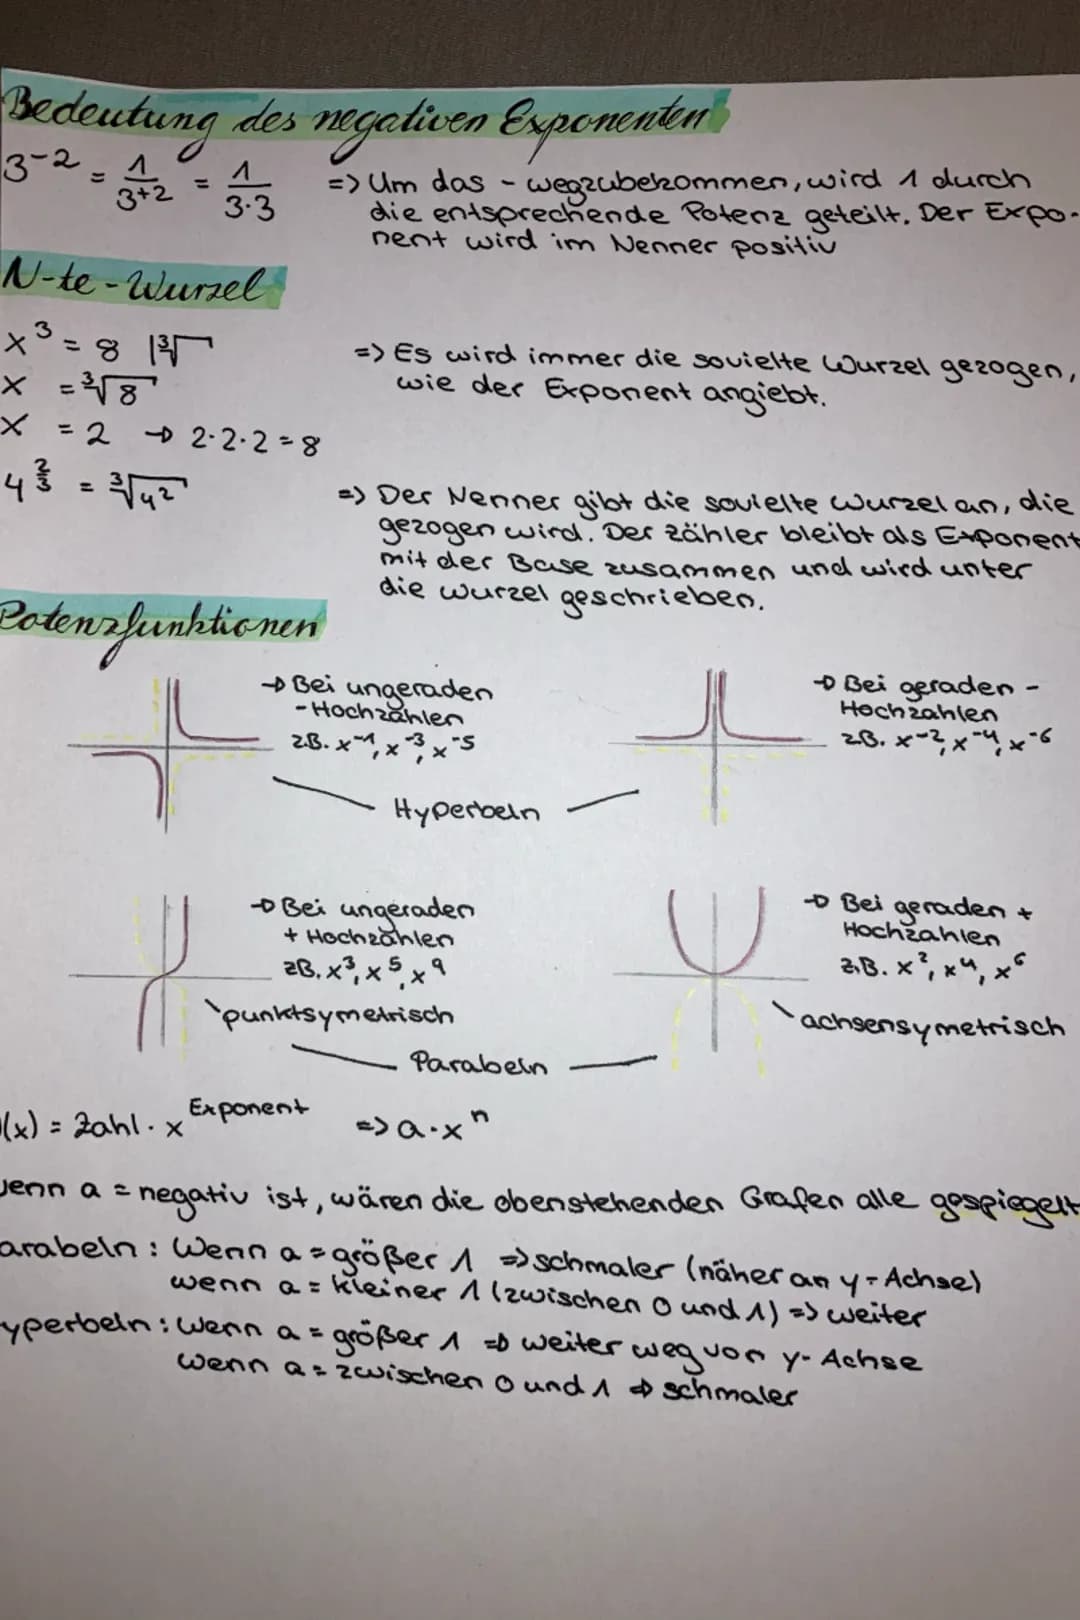 Bedeutung des negativen Exponenten
3⁻² = 1/3⁺² = 1/3·3 => Um das - wegzubekommen, wird 1 durch
die entsprechende Potenz geteilt. Der Expo-
nent wird im Nenner positiv
N-te-Wurzel
x³ = 8 |³√
x = ³√8
x = 2 → 2·2·2 = 8
=> Es wird immer die sovielte Wurzel gezogen,
wie der Exponent angiebt.
4^(2/3) = ³√4²
=> Der Nenner gibt die sovielte Wurzel an, die
gezogen wird. Der Zähler bleibt als Exponent
mit der Base zusammen und wird unter
die Wurzel geschrieben.
Potenzfunktionen
→ Bei ungeraden
- Hochzahlen
z.B. x⁻¹, x⁻³, x⁻⁵
→ Bei geraden -
Hochzahlen
z.B. x⁻², x⁻⁴, x⁻⁶
Hyperbeln
→ Bei ungeraden
+ Hochzahlen
z.B. x³, x⁵, x⁹
punktsymetrisch
→ Bei geraden +
Hochzahlen
z.B. x², x⁴, x⁶
achsensymetrisch
Parabeln
(x) = Zahl · x^Exponent => a·xⁿ
enn a = negativ ist, wären die obenstehenden Grafen alle gespiegelt
arabeln: Wenn a = größer 1 => schmaler (näher an y-Achse)
wenn a = kleiner 1 (zwischen 0 und 1) => weiter
yperbeln: Wenn a = größer 1 => weiter weg von y-Achse
wenn a = zwischen 0 und 1 => schmaler